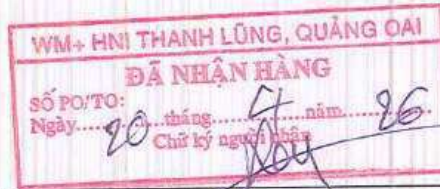 WM+ HNI THANH LŨNG, QUẢNG OAI
ĐÃ NHẬN HÀNG
SỐ PO/TO:
Ngày....20....tháng....4....năm....26....
Chữ ký người nhận